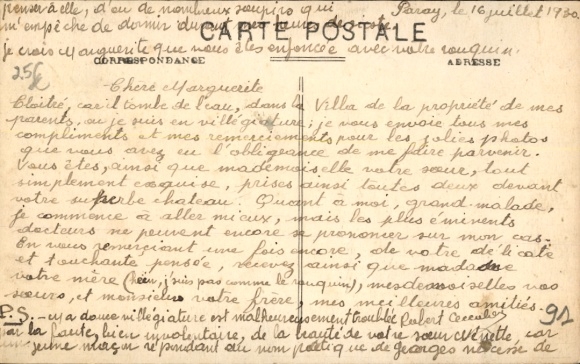 penser à elle, d'où de nombreux soupirs qui
Paray, le 16 juillet 1930
m'empêche de dormir durant
CARTE POSTALE
je crois Marguerite que vous êtes enfoncée avec votre rouquin.
25f
CORRESPONDANCE
ADRESSE
Chère Marguerite
Cloîtré, car il tombe de l'eau, dans la Villa de la propriété de mes
parents, où je suis en villégiature; je vous envoie tous mes
compliments et mes remerciements pour les jolies photos
que vous avez eu l'obligeance de me faire parvenir.
Vous êtes, ainsi que mademoiselle votre sœur, tout
simplement exquise, prises ainsi toutes deux devant
votre superbe chateau. Quant à moi, grand malade,
je commence à aller mieux, mais les plus éminents
docteurs ne peuvent encore se prononcer sur mon cas.
En vous remerciant une fois encore, de votre délicate
et touchante pensée, recevez ainsi que madame
votre mère (hein, j'suis pas comme le rouquin), mesdemoiselles vos
sœurs, et monsieur votre frère, mes meilleures amitiés.
P.S. - Ma douce villégiature est malheureusement troublée Robert
91
par la faute, bien involontaire, de la beauté de votre sœur, car
un jeune garçon répondant au nom poétique de Georges ne cesse de